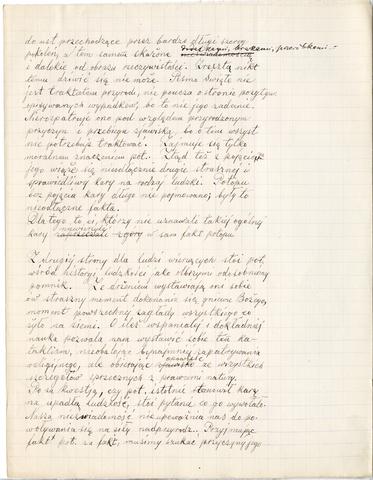 do ust przechodzące przez bardzo długi szereg
pokoleń, a tem samem skażone brakami,
i dalekie od obrazu rzeczywistości. Zresztą nikt
temu dziwić się nie może. Pismo Święte nie
jest traktatem przyrody, nie poucza o stronie pozytywn.
opisywanych wypadków, bo to nie jego zadanie.
Nie rozpatruje ono pod względem przyrodzonym
przyczyn i przebiegu zjawiska, bo o tem wszyst
nie potrzebuje traktować. Zajmuje się tylko
moralnem znaczeniem pot. Stąd też z pojęciem
jego wiąże się nieodłącznie drugie strasznej i
sprawiedliwej kary na rodzaj ludzki. Potopu
bez pojęcia kary długo nie pojmowano, były to
nieodłączne fakta.
Dlatego to ci, którzy nie uznawali takiej ogólnej
kary zaprzeczali z góry w sam fakt potopu
Z drugiej strony dla ludzi wierzących stoi pot.
wśród historyi ludzkości jako olbrzymi odosobniony
pomnik. Ze drżeniem wystawiają oni sobie
ów straszny moment dokonania się gniewu Bożego,
moment powszechnej zagłady wszystkiego co
żyło na ziemi. O ileż wspanialej i dokładniej
nauka pozwala nam wystawić sobie ten ka-
taklizm, nieobalając bynajmniej zapatrywania
religijnego, ale obierając ze wszystkich
szczegółów sprzecznych z prawami natury.
Po za kwestyą, czy pot. istotnie stanowił karę
na upadłą ludzkość, stoi pytanie co go wywołało.
Nasza nieświadomość nie upoważnia nas do po-
woływania się na siłę nadprzyrodz. Przyjmując
fakt pot. za fakt, musimy szukać przyczyny jego